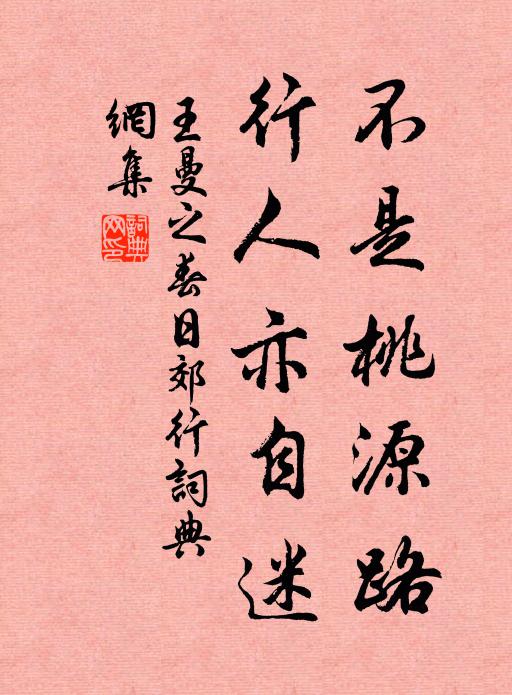 不是桃源路
行人亦自迷
王曼之春日郊行詞典
網集
詞典
网印